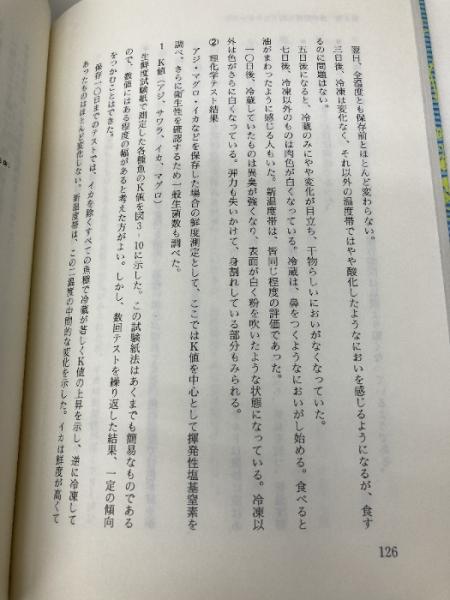 翌日、全温度とも保存前とほとんど変わらない。
三日後、冷凍は変化なく、それ以外の温度帯ではやや酸化したようなにおいを感じるようになるが、食す
るのに問題はない。
五日後になると、冷蔵のみにやや変化が目立ち、干物らしいにおいがなくなっていた。
七日後、冷凍以外のものは肉色が白くなっている。冷蔵は、鼻をつくようなにおいがし始める。食べると
油がまわったように感じる人もいた。新温度帯は、皆同じ程度の評価であった。
一〇日後、冷蔵していたものは異臭が強くなり、表面が白く粉を吹いたような状態になっている。冷凍以
外は色がさらに白くなっている。弾力も失いかけて、身割れしている部分もみられる。
② 理化学テスト結果
アジ・マグロ・イカなどを保存した場合の鮮度測定として、ここではK値を中心として揮発性塩基窒素を
調べ、さらに衛生性を確認するため一般生菌数も調べた。
1 K値（アジ、サワラ、イカ、マグロ）
生鮮度試験紙で測定した各種魚のK値を図3-10に示した。この試験紙法はあくまでも簡易なものである
ので、数値にはある程度の幅があると考えた方がよい。しかし、数回テストを繰り返した結果、一定の傾向
をつかむことはできた。
保存一〇日までのテストでは、イカを除くすべての魚種で冷蔵が著しくK値の上昇を示し、逆に冷凍して
あったものはほとんど変化しない。新温度帯は、この二温度の中間的な変化を示した。イカは鮮度が高くて
126